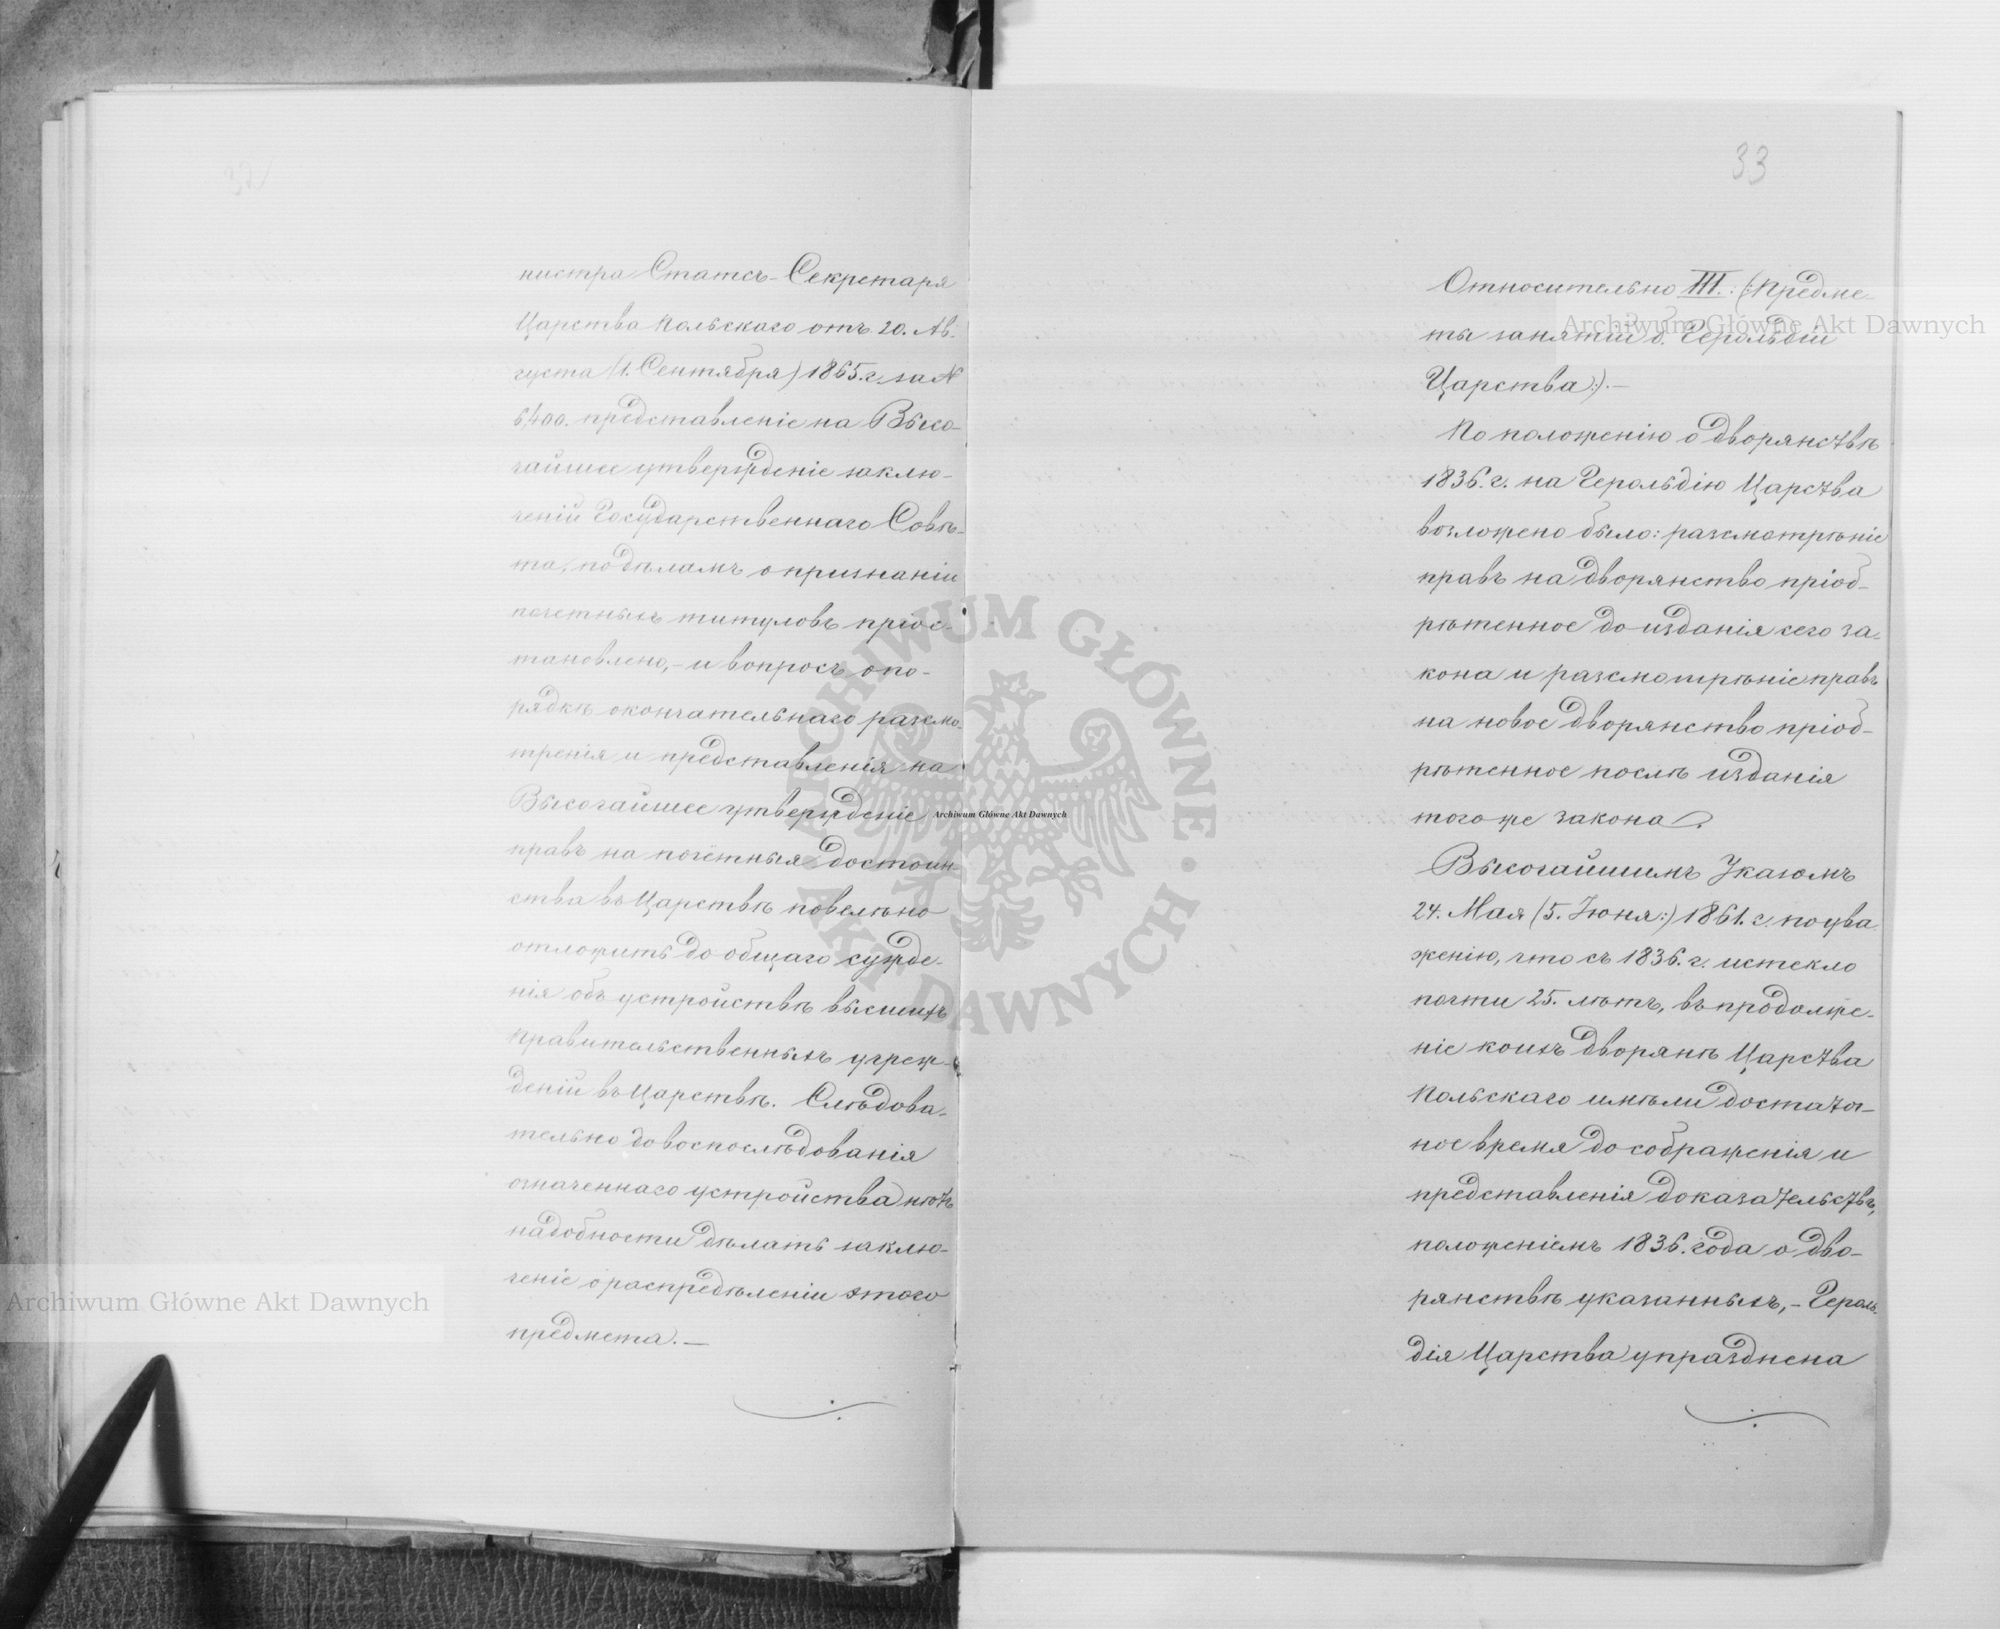 33
нистра Статсъ-Секретаря
Царства Польскаго отъ 20. Ав-
густа (1. Сентября) 1865. г. за N
6,400. представленіе на Высо-
чайшее утвержденіе заклю-
ченій Государственнаго Совѣ-
та, по дѣламъ о признаніи
почетныхъ титуловъ пріос-
тановлено,- и вопросъ о по-
рядкѣ окончательнаго разсмо-
тренія и представленія на
Высочайшее утвержденіе
правъ на почётныя достоин-
ства въ Царствѣ повелѣно
отложить до общаго сужде-
нія объ устройствѣ высшихъ
Правительственныхъ учреж-
деній въ Царствѣ. Слѣдова-
тельно до воспослѣдованія
означеннаго устройства нѣтъ
надобности дѣлать заклю-
ченіе о распредѣленіи этого
предмета.—
Относительно III.: (:Предме-
ты занятій б. Герольдіи
Царства:).—
По положенію о дворянствѣ
1836. г. на Герольдію Царства
возложено было: разсмотрѣніе
правъ на дворянство пріоб-
рѣтенное до изданія сего за-
кона и разсмотрѣніе правъ
на новое дворянство пріоб-
рѣтенное послѣ изданія
того же закона.
Высочайшимъ Указомъ
24. Мая (5. Іюня:) 1861. г. по ува
женію, что съ 1836. г. истекло
почти 25. лѣтъ, въ продолже-
ніе коихъ дворянѣ Царства
Польскаго имѣли достаточ-
ное время до сображенія и
представленія доказательствъ,
положеніемъ 1836. года о дво-
рянствѣ указанныхъ,- Героль-
дія Царства упразднена
Archiwum Główne Akt Dawnych
Archiwum Główne Akt Dawnych
Archiwum Główne Akt Dawnych
ARCHIWUM GŁÓWNE • AKT DAWNYCH •